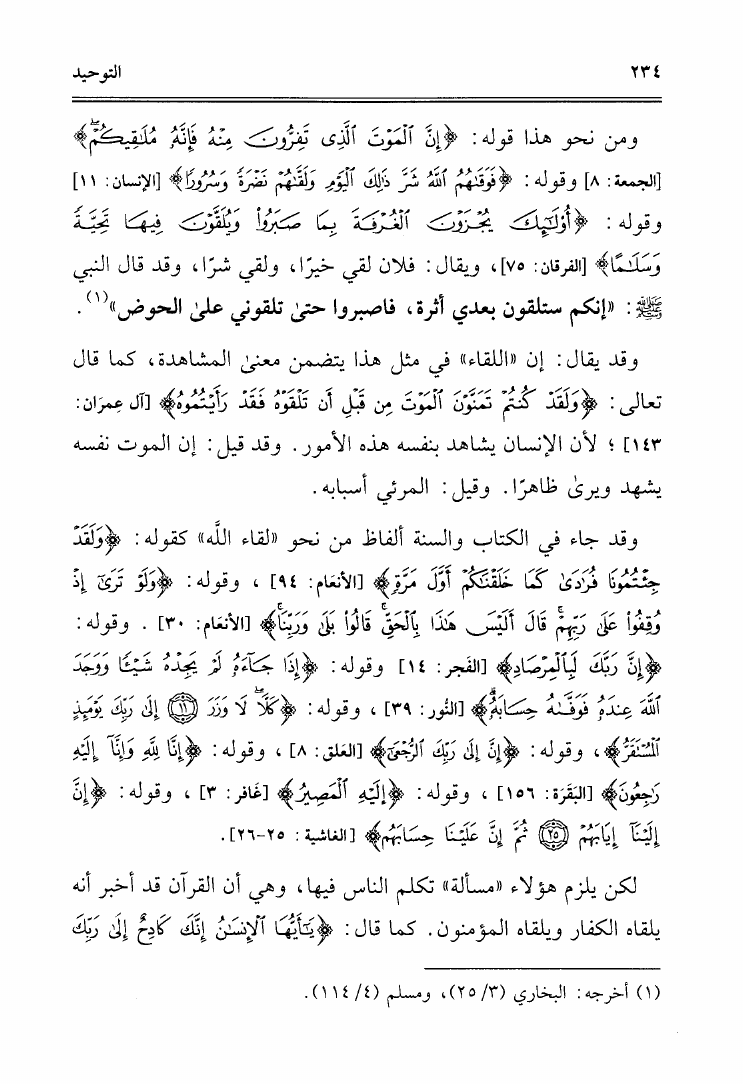 ٢٣٤ التوحيد
ومن نحو هذا قوله: ﴿إِنَّ ٱلْمَوْتَ ٱلَّذِى تَفِرُّونَ مِنْهُ فَإِنَّهُۥ مُلَـٰقِيكُمْ ۖ﴾
[الجمعة: ٨] وقوله: ﴿فَوَقَىٰهُمُ ٱللَّهُ شَرَّ ذَٰلِكَ ٱلْيَوْمِ وَلَقَّىٰهُمْ نَضْرَةً وَسُرُورًا﴾ [الإنسان: ١١]
وقوله: ﴿أُوْلَـٰٓئِكَ يُجْزَوْنَ ٱلْغُرْفَةَ بِمَا صَبَرُوا۟ وَيُلَقَّوْنَ فِيهَا تَحِيَّةً
وَسَلَـٰمًا﴾ [الفرقان: ٧٥]، ويقال: فلان لقي خيرًا، ولقي شرًا، وقد قال النبي
ﷺ: «إنكم ستلقون بعدي أثرة، فاصبروا حتىٰ تلقوني علىٰ الحوض»(١).
وقد يقال: إن «اللقاء» في مثل هذا يتضمن معنىٰ المشاهدة، كما قال
تعالى: ﴿وَلَقَدْ كُنتُمْ تَمَنَّوْنَ ٱلْمَوْتَ مِن قَبْلِ أَن تَلْقَوْهُ فَقَدْ رَأَيْتُمُوهُ﴾ [آل عِمرَان:
١٤٣] ؛ لأن الإنسان يشاهد بنفسه هذه الأمور. وقد قيل: إن الموت نفسه
يشهد ويرىٰ ظاهرًا. وقيل: المرئي أسبابه.
وقد جاء في الكتاب والسنة ألفاظ من نحو «لقاء اللَّه» كقوله: ﴿وَلَقَدْ
جِئْتُمُونَا فُرَٰدَىٰ كَمَا خَلَقْنَـٰكُمْ أَوَّلَ مَرَّةٍ﴾ [الأنعَام: ٩٤] ، وقوله: ﴿وَلَوْ تَرَىٰٓ إِذْ
وُقِفُوا۟ عَلَىٰ رَبِّهِمْ ۚ قَالَ أَلَيْسَ هَـٰذَا بِٱلْحَقِّ ۚ قَالُوا۟ بَلَىٰ وَرَبِّنَا ۚ﴾ [الأنعَام: ٣٠] . وقوله:
﴿إِنَّ رَبَّكَ لَبِٱلْمِرْصَادِ﴾ [الفَجر: ١٤] وقوله: ﴿إِذَا جَآءَهُۥ لَمْ يَجِدْهُ شَيْـًٔا وَوَجَدَ
ٱللَّهَ عِندَهُۥ فَوَفَّىٰهُ حِسَابَهُۥ ۗ﴾ [النُّور: ٣٩] ، وقوله: ﴿كَلَّا لَا وَزَرَ ۝١١ إِلَىٰ رَبِّكَ يَوْمَئِذٍ
ٱلْمُسْتَقَرُّ﴾ ، وقوله: ﴿إِنَّ إِلَىٰ رَبِّكَ ٱلرُّجْعَىٰٓ﴾ [العَلق: ٨] ، وقوله: ﴿إِنَّا لِلَّهِ وَإِنَّآ إِلَيْهِ
رَٰجِعُونَ﴾ [البَقَرَة: ١٥٦] ، وقوله: ﴿إِلَيْهِ ٱلْمَصِيرُ﴾ [غَافر: ٣] ، وقوله: ﴿إِنَّ
إِلَيْنَآ إِيَابَهُمْ ۝٢٥ ثُمَّ إِنَّ عَلَيْنَا حِسَابَهُم﴾ [الغاشية: ٢٥-٢٦].
لكن يلزم هؤلاء «مسألة» تكلم الناس فيها، وهي أن القرآن قد أخبر أنه
يلقاه الكفار ويلقاه المؤمنون. كما قال: ﴿يَـٰٓأَيُّهَا ٱلْإِنسَـٰنُ إِنَّكَ كَادِحٌ إِلَىٰ رَبِّكَ
(١) أخرجه: البخاري (٣/ ٢٥)، ومسلم (٤/ ١١٤).